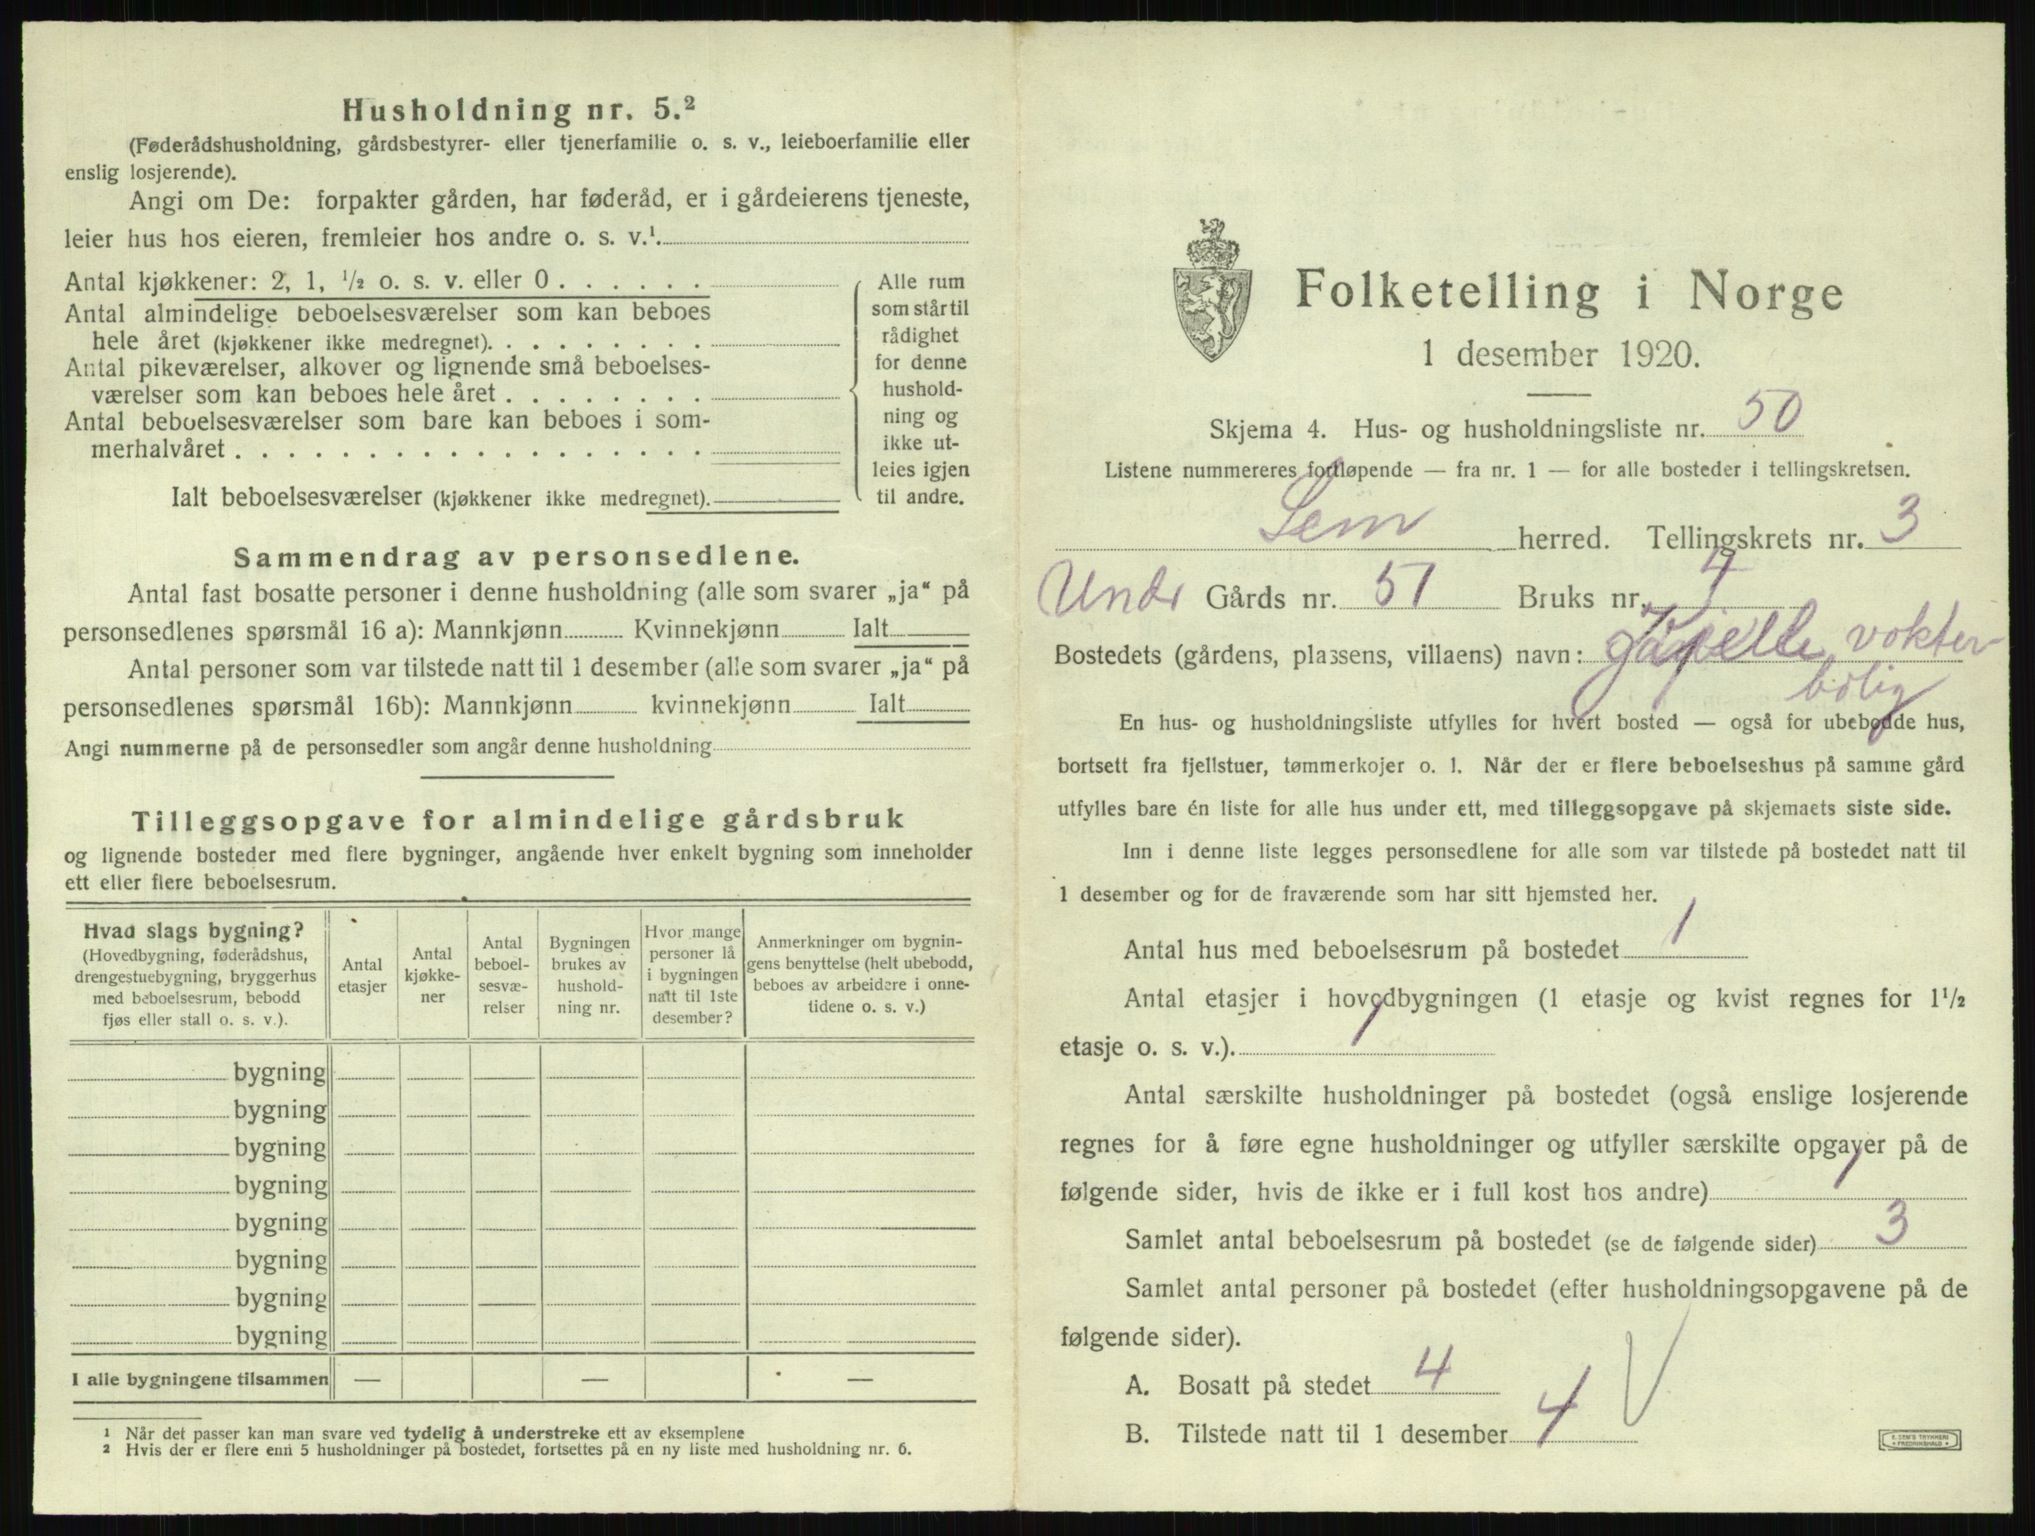 Husholdning nr. 5.²
(Føderådshusholdning, gårdsbestyrer- eller tjenerfamilie o. s. v., leieboerfamilie eller
enslig losjerende).
Angi om De: forpakter gården, har føderåd, er i gårdeierens tjeneste,
leier hus hos eieren, fremleier hos andre o. s. v.¹.
Antal kjøkkener: 2, 1, ½ o. s. v. eller 0 . . . . . .
Antal almindelige beboelsesværelser som kan beboes
hele året (kjøkkener ikke medregnet). . . . . . . . .
Antal pikeværelser, alkover og lignende små beboelses-
værelser som kan beboes hele året . . . . . . . .
Antal beboelsesværelser som bare kan beboes i som-
merhalvåret . . . . . . . . . . . . . . . . . .
Ialt beboelsesværelser (kjøkkener ikke medregnet).
Alle rum
som står til
rådighet
for denne
hushold-
ning og
ikke ut-
leies igjen
til andre.
Sammendrag av personsedlene.
Antal fast bosatte personer i denne husholdning (alle som svarer „ja“ på
personsedlenes spørsmål 16 a): Mannkjønn Kvinnekjønn Ialt
Antal personer som var tilstede natt til 1 desember (alle som svarer „ja“ på
personsedlenes spørsmål 16b): Mannkjønn kvinnekjønn Ialt
Angi nummerne på de personsedler som angår denne husholdning
Tilleggsopgave for almindelige gårdsbruk
og lignende bosteder med flere bygninger, angående hver enkelt bygning som inneholder
ett eller flere beboelsesrum.
Hvad slags bygning?
(Hovedbygning, føderådshus,
drengestuebygning, bryggerhus
med beboelsesrum, bebodd
fjøs eller stall o. s. v.).
Antal
etasjer
Antal
kjøkke-
ner
Antal
beboel-
sesvæ-
relser
Bygningen
brukes av
hushold-
ning nr.
Hvor mange
personer lå
i bygningen
natt til 1ste
desember?
Anmerkninger om bygnin-
gens benyttelse (helt ubebodd,
beboes av arbeidere i onne-
tidene o. s. v.)
bygning
bygning
bygning
bygning
bygning
bygning
bygning
bygning
I alle bygningene tilsammen — — —
¹ Når det passer kan man svare ved tydelig å understreke ett av eksemplene
² Hvis der er flere enn 5 husholdninger på bostedet, fortsettes på en ny liste med husholdning nr. 6.
Folketelling i Norge
1 desember 1920.
Skjema 4. Hus- og husholdningsliste nr. 50
Listene nummereres fortløpende — fra nr. 1 — for alle bosteder i tellingskretsen.
Sem herred. Tellingskrets nr. 3
Undr Gårds nr. 51 Bruks nr. 4
Bostedets (gårdens, plassens, villaens) navn: vokter
bolig
En hus- og husholdningsliste utfylles for hvert bosted — også for ubebodde hus,
bortsett fra fjellstuer, tømmerkojer o. l. Når der er flere beboelseshus på samme gård
utfylles bare én liste for alle hus under ett, med tilleggsopgave på skjemaets siste side.
Inn i denne liste legges personsedlene for alle som var tilstede på bostedet natt til
1 desember og for de fraværende som har sitt hjemsted her.
Antal hus med beboelsesrum på bostedet 1
Antal etasjer i hovedbygningen (1 etasje og kvist regnes for 1½
etasje o. s. v.). 1
Antal særskilte husholdninger på bostedet (også enslige losjerende
regnes for å føre egne husholdninger og utfyller særskilte opgaver på de
følgende sider, hvis de ikke er i full kost hos andre) 1
Samlet antal beboelsesrum på bostedet (se de følgende sider) 3
Samlet antal personer på bostedet (efter husholdningsopgavene på de
følgende sider).
A. Bosatt på stedet 4
B. Tilstede natt til 1 desember 4
E. SEM'S TRYKKERI
FREDRIKSHALD